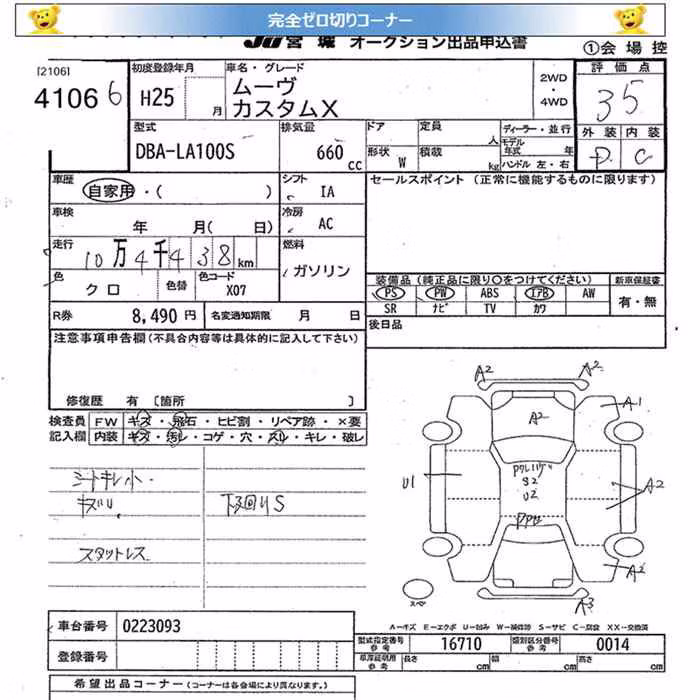 完全ゼロ切りコーナー
JU 宮城 オークション出品申込書
①会場控
[2106]
41066
初度登録年月
H25
月
車名・グレード
ムーヴ
カスタムX
2WD
・
4WD
評価点
35
外装 内装
D C
型式
DBA-LA100S
排気量
660
cc
ドア
形状 W
定員 人
積載 kg
ディーラー・並行
モデル年式 年
ハンドル 左・右
車歴
自家用・( )
シフト
IA
セールスポイント (正常に機能するものに限ります)
車検
年 月( 日)
冷房
AC
走行
10万4千438km
燃料
ガソリン
色
クロ
色替
色コード
X07
装備品 (純正品に限り○をつけてください)
新車保証書
PS PW ABS エアB AW
有・無
SR ナビ TV カワ
R券 8,490円
名変通知期限 月 日
後日品
注意事項申告欄(不具合内容等は具体的に記入して下さい)
修復歴 有 〔箇所 〕
検査員 FW キズ・飛石・ヒビ割・リペア跡・×要
記入欄 内装 キズ・汚レ・コゲ・穴・スレ・キレ・破レ
シートキレ小
キズリ
下廻りS
スタットレス
A2 A2
A2
A1
S2
U2
U1
A2
A2
A3
スペア
A-キズ E-エクボ U-凹み W-補修跡 S-サビ C-腐食 XX-交換済
車台番号 0223093
型式指定番号
参考
16710
類別区分番号
参考
0014
登録番号
車庫証明用
参考
長さ cm
幅 cm
高さ cm
希望出品コーナー (コーナーは各会場により異なります。)